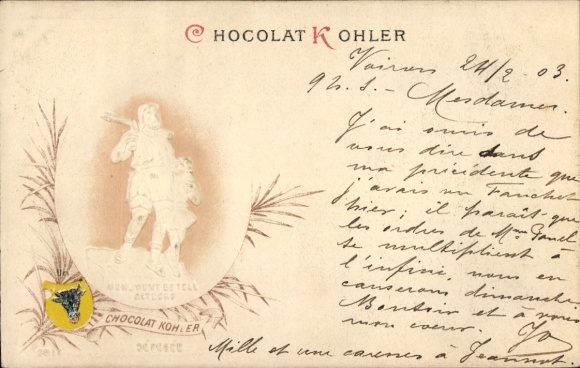 CHOCOLAT KOHLER
Voiron 24/2 - 03.
9h. s. - Mesdames.
J'ai omis de
vous dire dans
ma précédente que
j'avais un Fanchet
hier; il paraît que
les ordres de Mme
se multiplient à
l'infini, nous en
causerons dimanche
Bonsoir et à vous
mon coeur.
Mille et une caresses à Jeannot.
MONUMENT DE TELL
ALTDORF
CHOCOLAT KOHLER
DÉPOSÉE